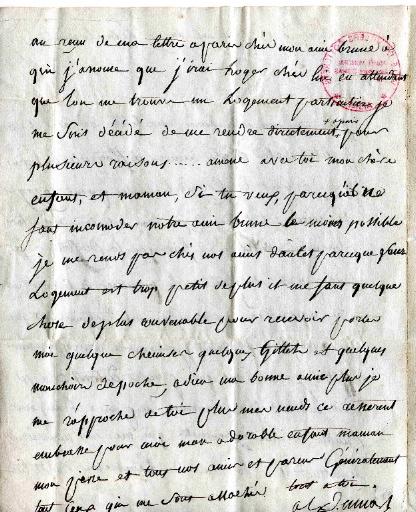 au renu de ma lettre aparis chér mon ami brune à
qui j'anonce que j'irai loger chér lui en attendant
que lon me trouve un logement particulier je
me suis décidé de me rendre directement a paris pour
plusieurs raisons...... amene avec toi mon chère
enfant, et maman, si tu veux, parcequ'il ne
faut incomoder notre ami brune le moins possible
je me rends pas chés nos amis parceque leur
logement est trop petit deplus il me faut quelque
chose deplus convenable pour recevoir porter
moi quelque chemises quelques gillets et quelques
mouchoirs depoche, adieu ma bonne amie plus je
me rapproche de toi plus mes neuds ce resserent
embrasse pour moi mon adorable enfant maman
mon père et tous nos amis et parens Généralement
tout ceux qui me sont attachés tout a toi.